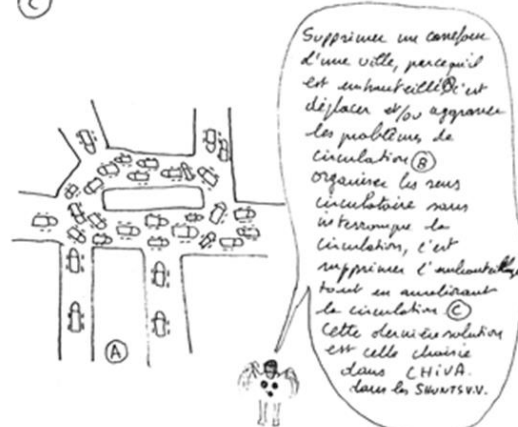 C
Supprimer un carrefour
d'une ville, parcequ'il
est embouteillé, c'est
déplacer et/ou aggraver
les problèmes de
circulation (B)
organiser les sens
circulatoire sans
interrompre la
circulation, c'est
supprimer l'embouteillage
tout en améliorant
la circulation (C)
Cette dernière solution
est celle choisie
dans CHIVA.
dans les SHUNTS V.V.
A